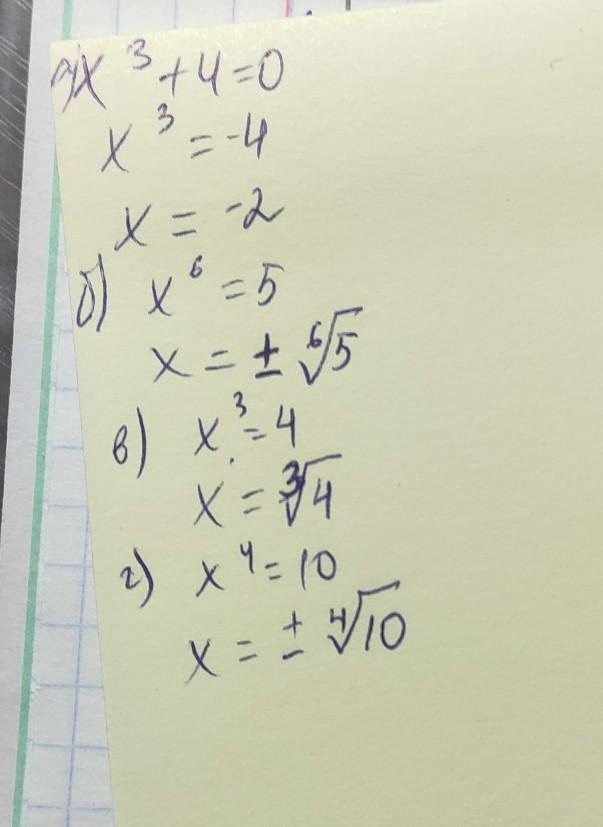 а) x³ + 4 = 0
x³ = -4
x = -2
б) x⁶ = 5
x = ± ⁶√5
в) x³ = 4
x = ³√4
г) x⁴ = 10
x = ± ⁴√10